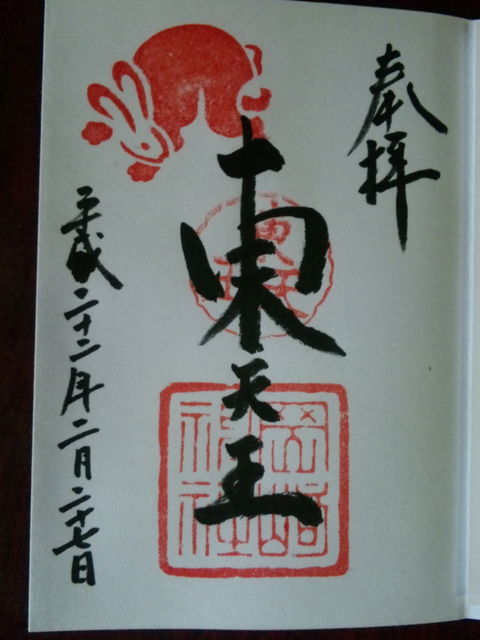 奉拝
東天王
岡崎神社
平成二十二年二月二十七日